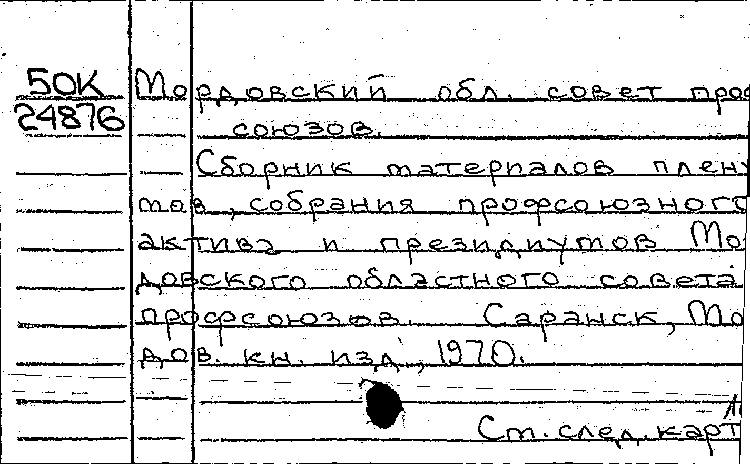 50К Мордовский обл. совет проф
24876 союзов.
Сборник материалов плену
мов, собрания профсоюзного
актива и президиумов Мо
довского областного совета
профсоюзов. Саранск, Мо
дов. кн. изд., 1970.
Ст. след. карт